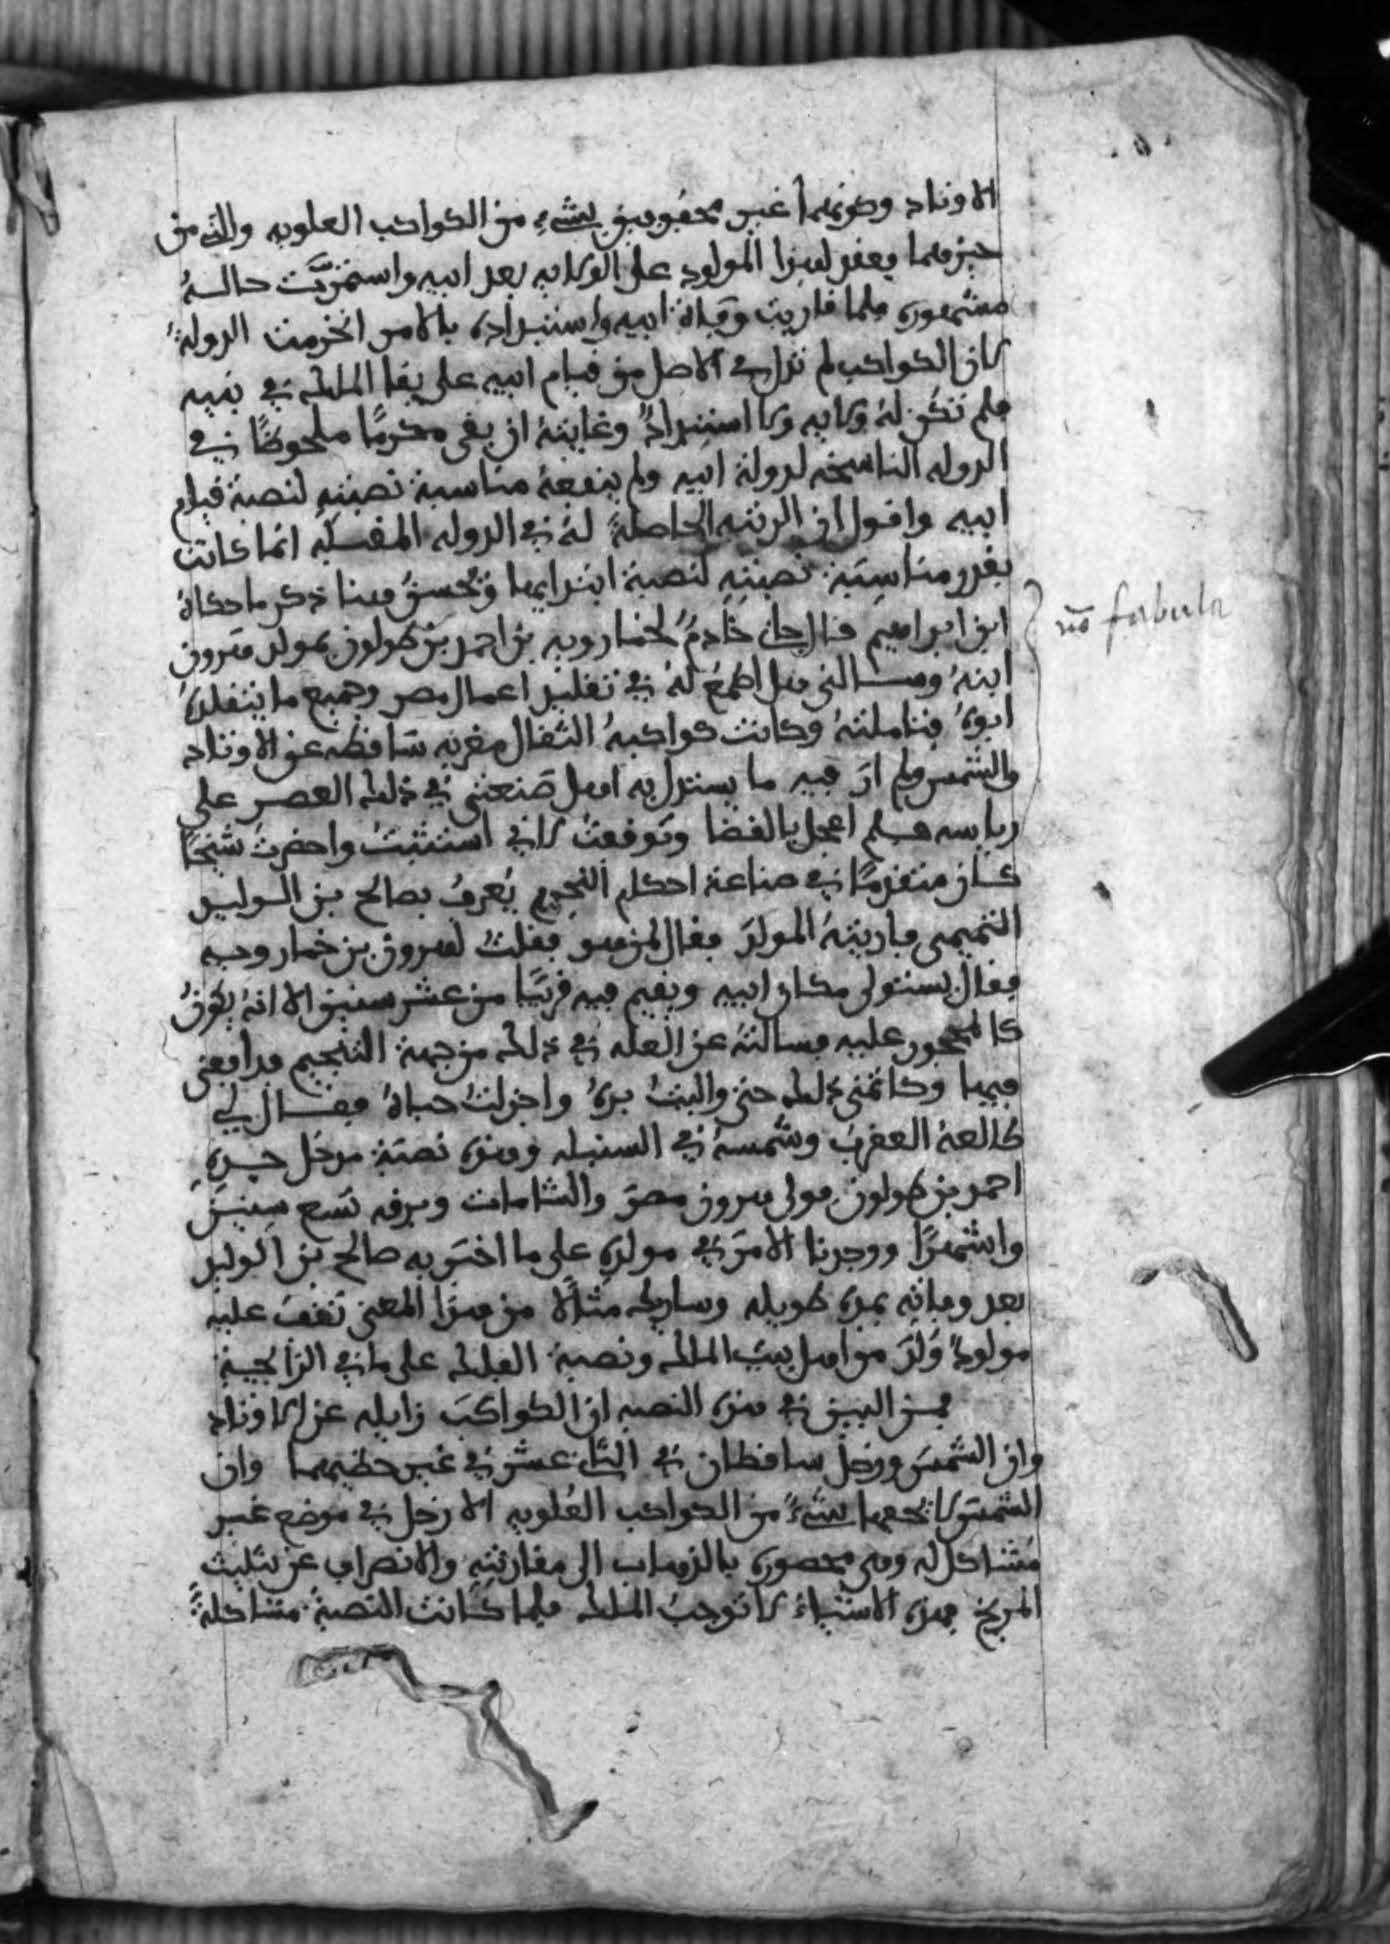 الاوتاد وكونهما غير محفوفين بشيء من الكواكب العلويه والتي من
حيزهما فعقد لهذا المولود على الولايه بعد ابيه واستمرت حاله
مشهوره فلما قاربت وفاة ابيه واستبداده بالامر انخرمت الدولة
لان الكواكب لم تدل في الاصل من قيام ابيه على بقا الملك في بنيه
فلم تكن له ولايه ولا استبداد وغايته ان بقى مكرما ملحوظا في
الدوله الناسخه لدولة ابيه ولم ينفعه مناسبة نصبته لنصبة قيام
ابيه واقول ان الرتبه الحاصلة له في الدوله انما كانت
بقدر مناسبة نصبته لنصبة ابتدايها ويحسن هنا ذكر ما حكاه
ابن ابراهيم قال جاني خادم لخمارويه بن احمد بن طولون بمولد هرون
ابنه وسالني هل اطمع له في تقليد اعمال مصر وجميع ما يتقلده
ابوه فتاملته وكانت كواكبه الثقال مغربه ساقطه عن الاوتاد
والشمس ولم ار فيه ما يستدل به اهل صنعتي في ذلك العصر على
رياسه فلم اعجل بالقضا وتوقفت لاني استثبت واحضرت شيخا
كان متقدما في صناعة احكام النجوم يعرف بصالح بن الوليد
التميمى فاريته المولد فقال لمن هو فقلت لهرون بن خمارويه
فقال يستولى مكان ابيه ويقيم فيه قريبا من عشر سنين الا انه يكون
كالمحجور عليه فسالته عن العله في ذلك من جهة التنجيم فدافعنى
فيها وكاتمنى ذلك حتى واليت بره واجزلت حباه فقال لي
طالعه العقرب وشمسه في السنبله وهذه نصبة مدخل جده
احمد بن طولون فولى هرون مصر والشامات وبرقه تسع سنين
واشهرا ووجدنا الامر في مولده على ما اخبر به صالح بن الوليد
بعد وفاته بمدة طويله وساريك مثالا من هذا المعنى تقف عليه
مولودا ولد من اهل بيت الملك ونصبة الفلك على ما في الزايجة
فمن البين في هذه النصبه ان الكواكب زايله عن الاوتاد
وان الشمس وزحل ساقطان في الثاني عشر في غير حظيهما وان
الشمس لا يحفها بشيء من الكواكب العلويه الا زحل في موضع غير
مشاكل له وهى محصوره بالذهاب الى مقارنته والانصراف عن تثليث
المريخ فهذه الاشياء لا توجب الملك فلما كانت النصبة مشاكلة
no fabula